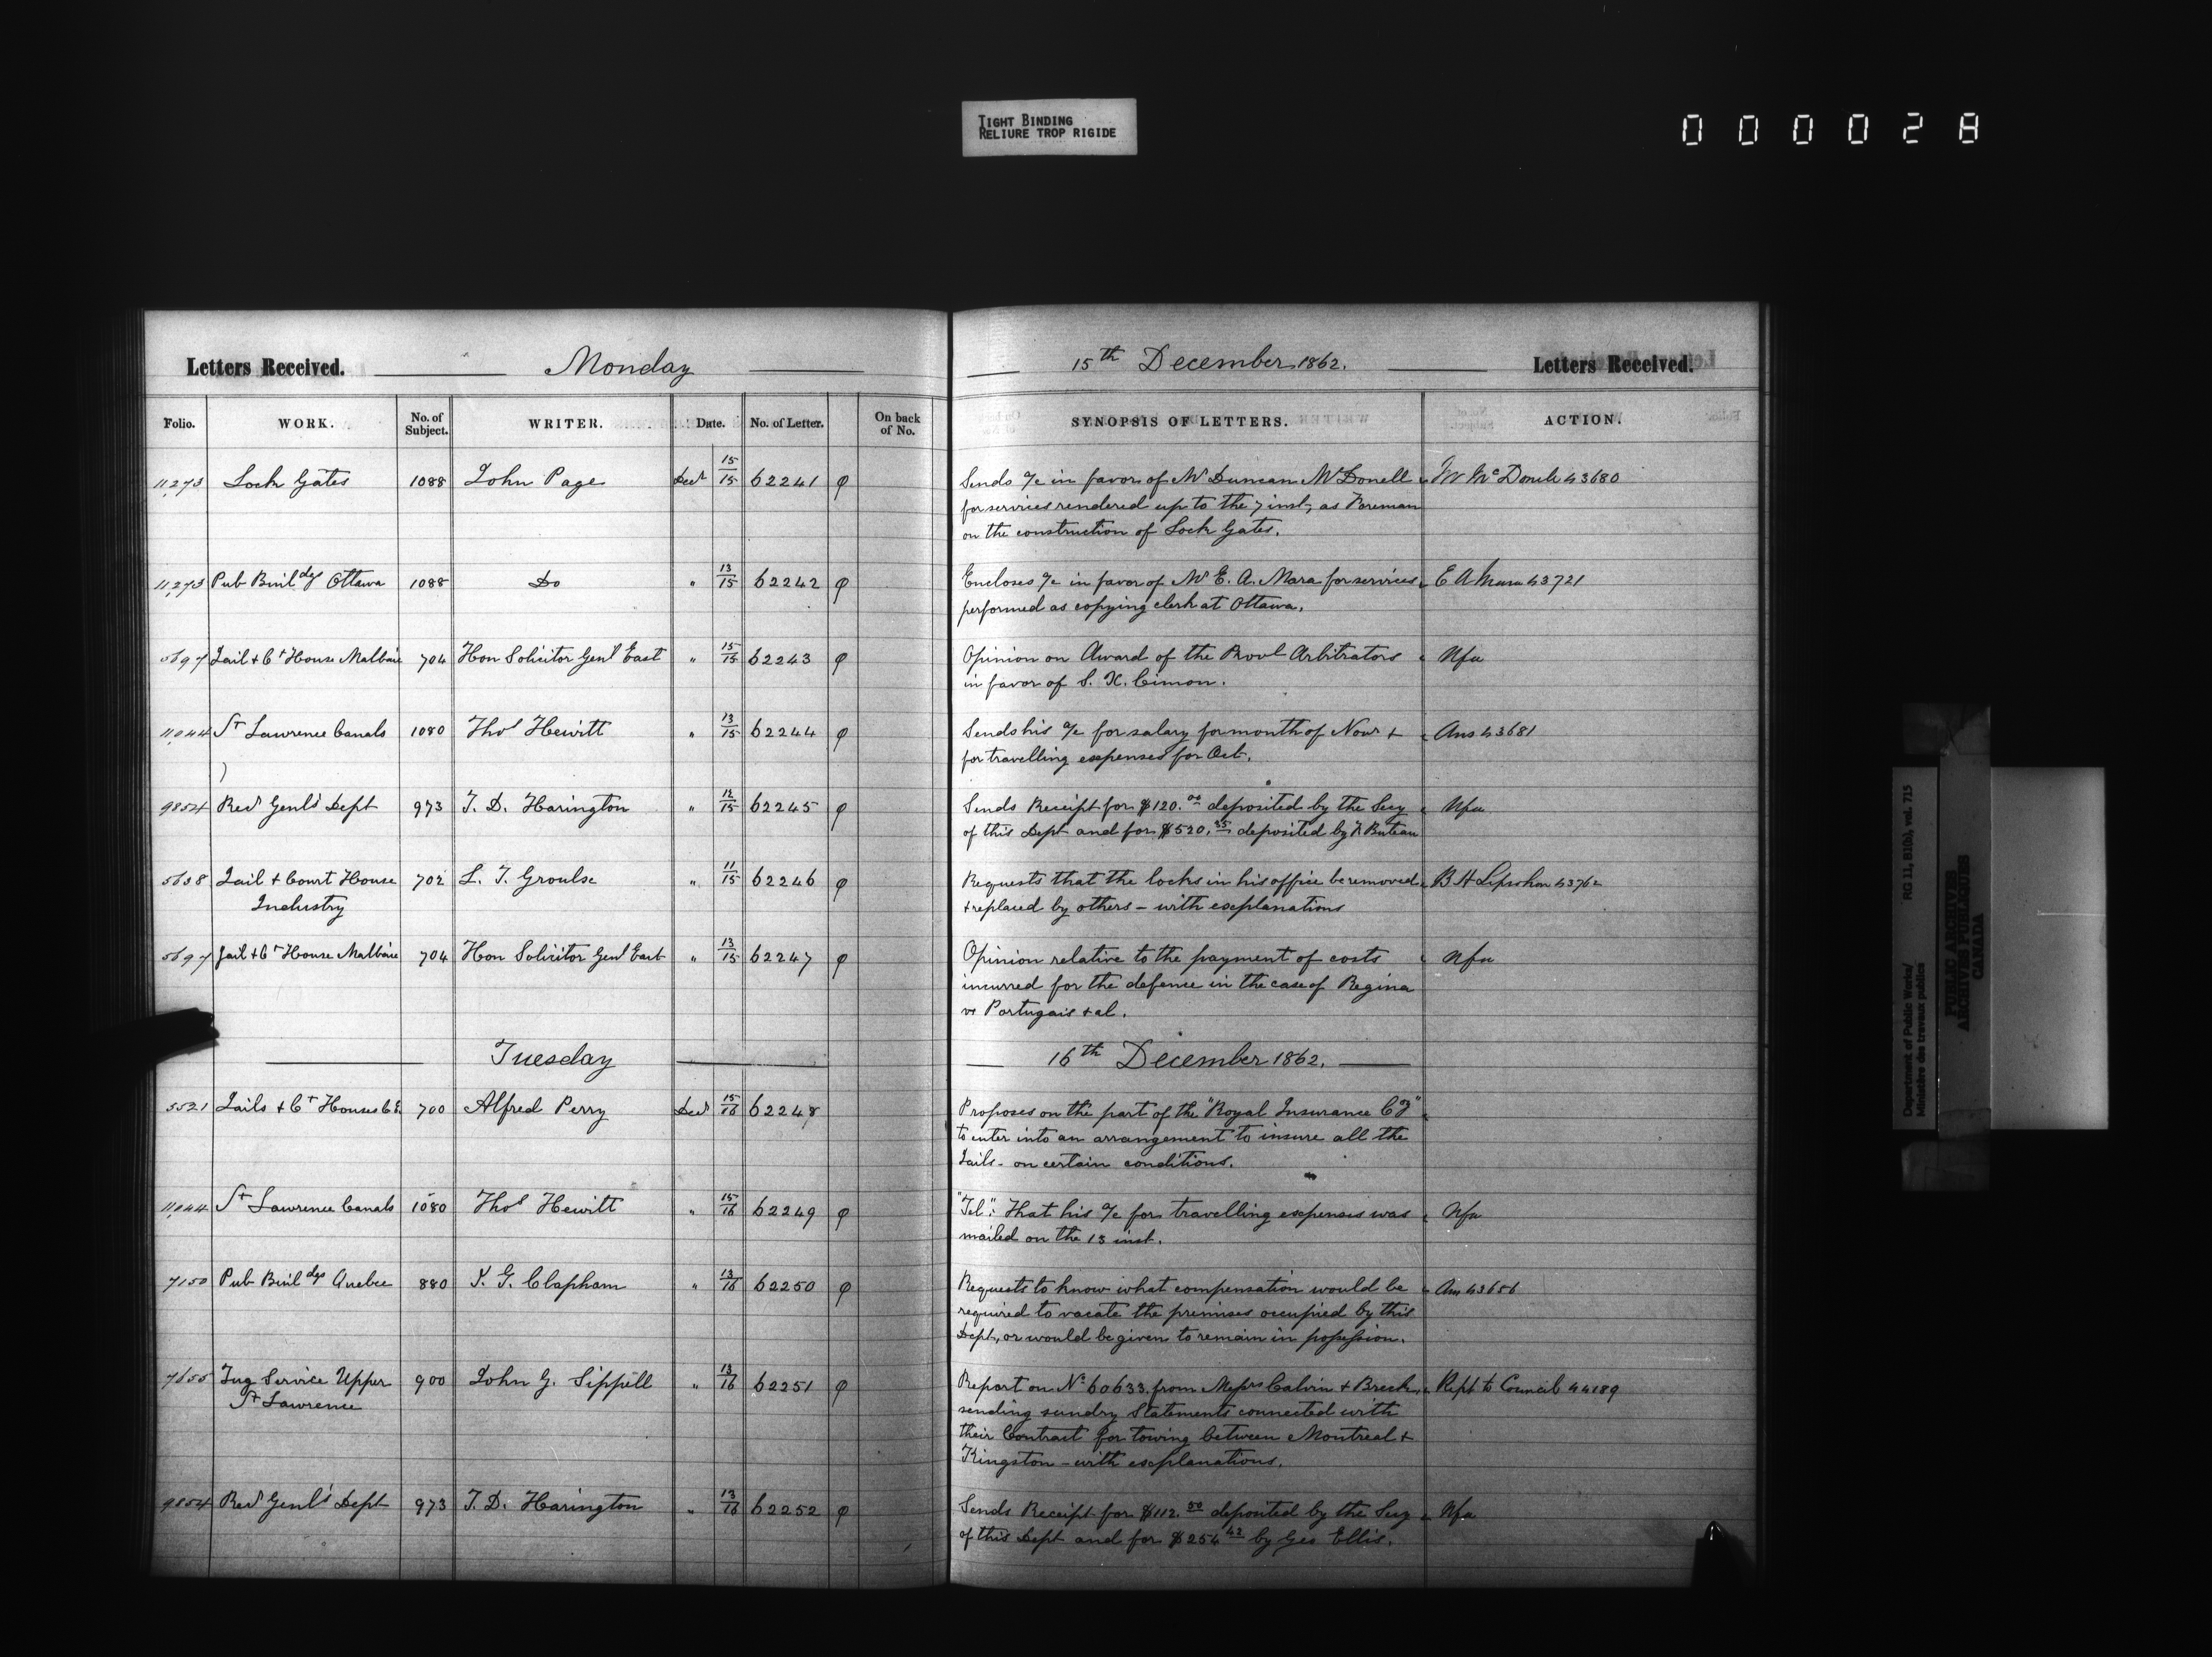 TIGHT BINDING
RELIURE TROP RIGIDE
000028
Letters Received. Monday 15th December 1862. Letters Received.
Folio. WORK. No. of Subject. WRITER. Date. No. of Letter. On back of No. SYNOPSIS OF LETTERS. ACTION.
11,273 Lock Gates 1088 John Page Decr 15/15 62241 φ Sends a/c in favor of Mr Duncan McDonell 43680
for services rendered up to the 7 inst, as Foreman
on the construction of Lock Gates.
11,273 Pub Buildgs Ottawa 1088 Do " 13/15 62242 φ Encloses a/c in favor of Mr E. A. Mara for services E A Mara 43721
performed as copying clerk at Ottawa.
5697 Jail & Ct House Malbaie 704 Hon Solicitor Genl East " 15/15 62243 φ Opinion on Award of the Provl Arbitrators Nfa
in favor of S. X. Cimon.
11,044 St Lawrence Canals 1080 Thos Hewitt " 13/15 62244 φ Sends his a/c for salary for month of Novr & Ans 43681
for travelling expenses for Oct.
9854 Recr Genl's Dept 973 T. D. Harington " 12/15 62245 φ Sends Receipt for $120.00 deposited by the Secy Nfa
of this Dept and for $520.35 deposited by F. Buteau
5638 Jail & Court House 702 L. J. Groulx " 11/15 62246 φ Requests that the locks in his office be removed B H Leprohon 43762
Industry & replaced by others - with explanations
5697 Jail & Ct House Malbaie 704 Hon Solicitor Genl East " 13/15 62247 φ Opinion relative to the payment of costs Nfa
incurred for the defence in the case of Regina
vs Portugais & al.
Tuesday 16th December 1862.
5521 Jails & Ct Houses C.E. 700 Alfred Perry Decr 15/16 62248 Proposes on the part of the "Royal Insurance Coy"
to enter into an arrangement to insure all the
Jails - on certain conditions.
11,044 St Lawrence Canals 1080 Thos Hewitt " 15/16 62249 φ "Tel": That his a/c for travelling expenses was Nfa
mailed on the 13 inst.
7150 Pub Buildgs Quebec 880 J. G. Clapham " 13/16 62250 φ Requests to know what compensation would be Ans 43656
required to vacate the premises occupied by this
Dept, or would be given to remain in possession.
7655 Tug Service Upper 900 John G. Sippell " 13/16 62251 φ Report on No 60633 from Messrs Calvin & Breck, Rept to Council 44189
St Lawrence sending sundry Statements connected with
their Contract for towing between Montreal &
Kingston - with explanations.
9854 Recr Genl's Dept 973 T. D. Harington " 13/16 62252 φ Sends Receipt for $112.50 deposited by the Secy Nfa
of this Dept and for $254.42 by Geo Ellis.
Department of Public Works/ RG 11, B1(b), vol. 715
Ministère des travaux publics
PUBLIC ARCHIVES
ARCHIVES PUBLIQUES
CANADA